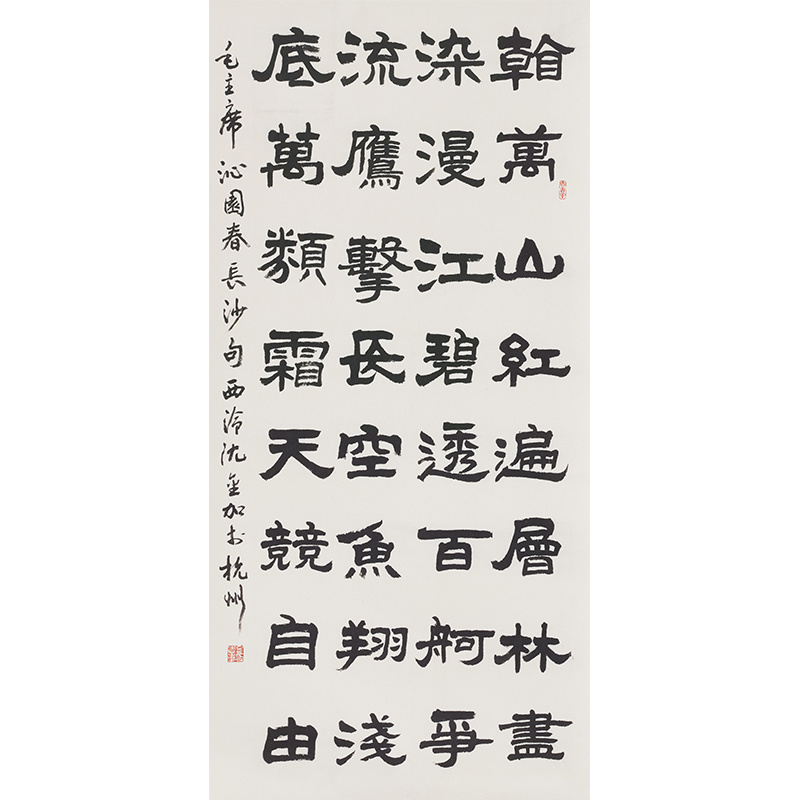 看萬山紅遍層林盡
染漫江碧透百舸爭
流鷹擊長空魚翔淺
底萬類霜天競自由
毛主席沁園春長沙句西泠沈金加於杭州